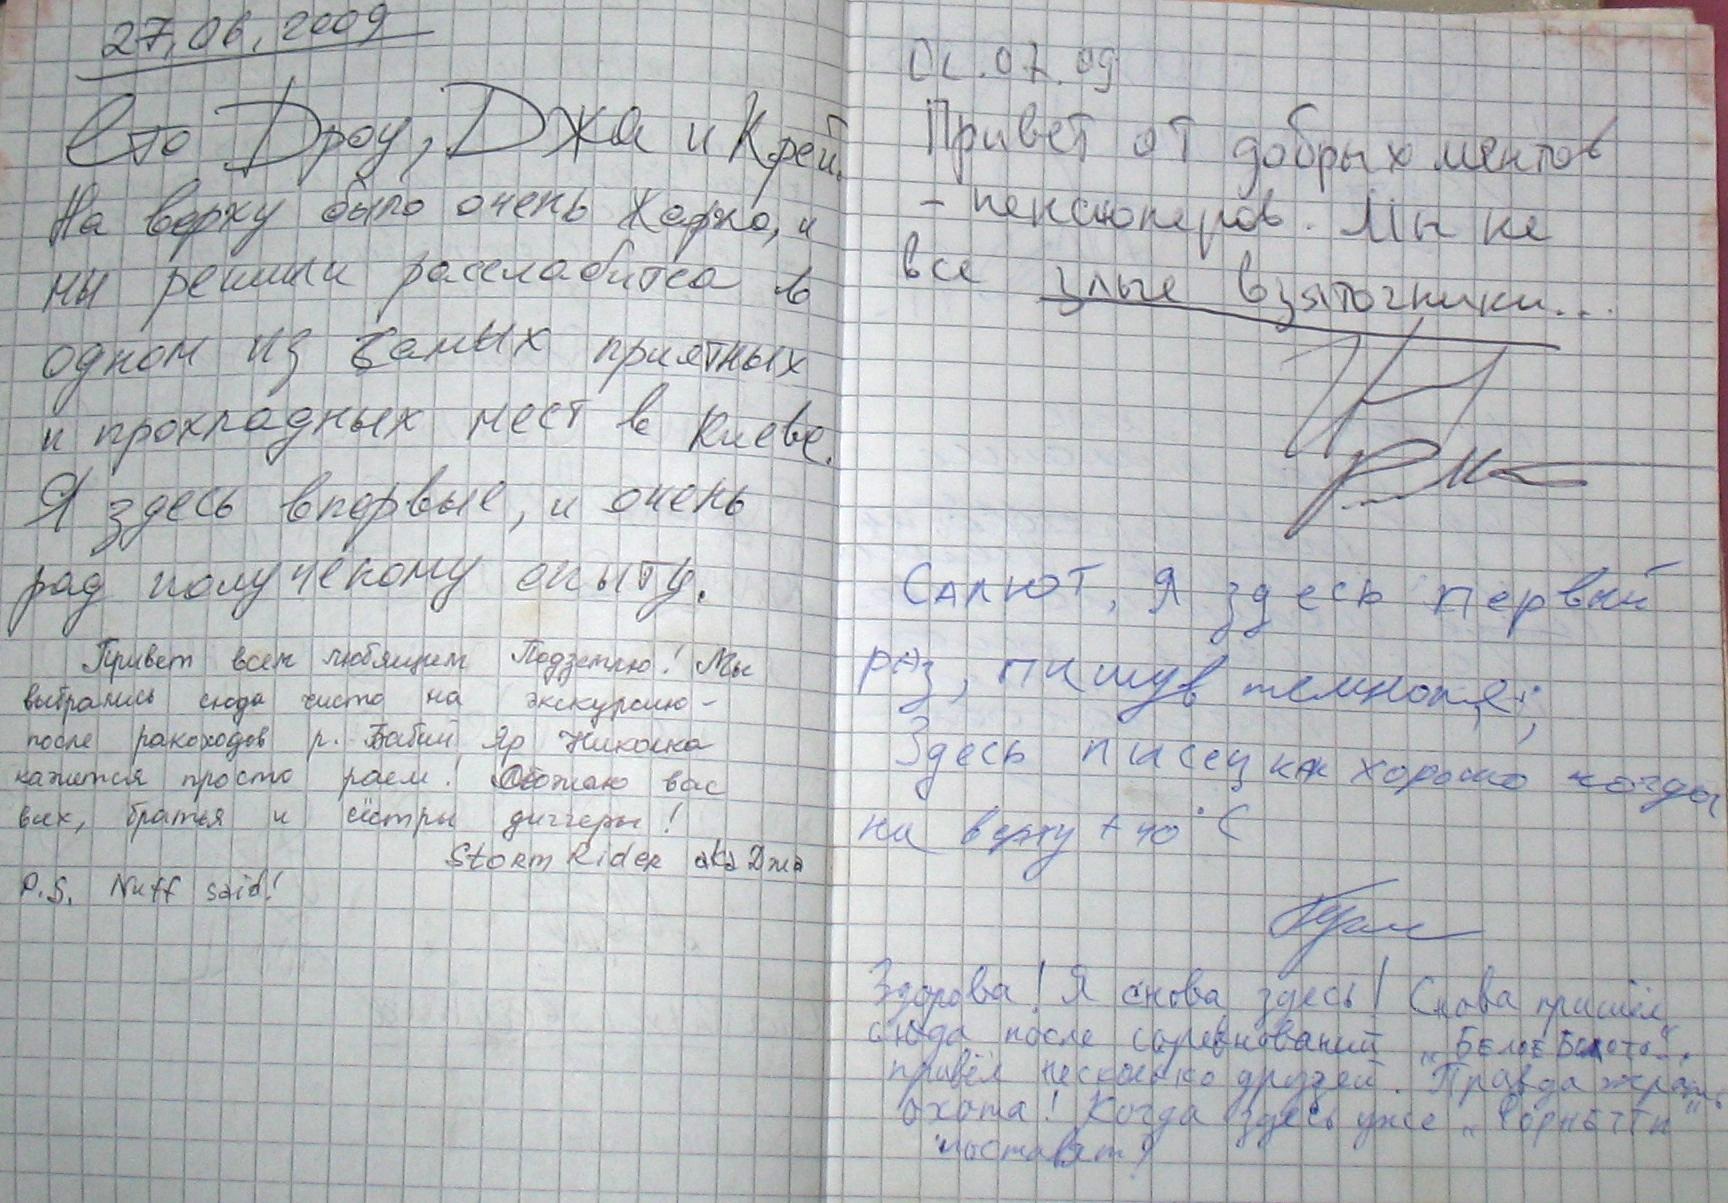 27.06.2009
Это Дроу, Джа и Крей.
На верху было очень жарко, и
мы решили расслабится в
одном из самых приятных
и прохладных мест в Киеве.
Я здесь впервые, и очень
рад полученому опыту.
Привет всем любящим Подземлю! Мы
выбрались сюда чисто на экскурсию -
после ракоходов р. Бабий Яр Николка
кажется просто раем! Обожаю вас
всех, братья и сёстры диггеры!
Storm Rider aka Джа
P.S. Nuff said!
07.09
Привет от добрых ментов
- пенсионеров. Мы не
все злые взяточники...
Салют, Я здесь первый
раз, пишу в темноте;
Здесь писец как хорошо когда
на верху +40°C
Здорова! Я снова здесь! Снова пришёл
сюда после соревнований „Белое Болото".
привёл несколько друзей. Правда жрать
охота! Когда здесь уже „Форнетти"
поставят?